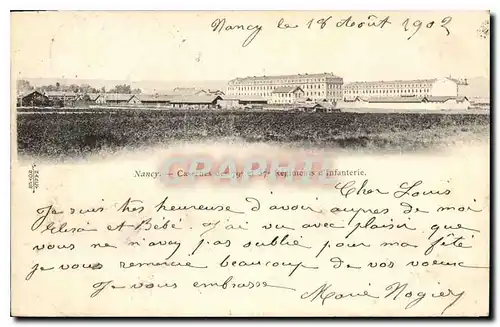 Nancy le 18 Août 1902
Nancy. - Casernes des et 37e Régiments d'Infanterie.
Cher Louis
Je suis très heureuse d'avoir auprès de moi
et Bébé. J'ai vu avec plaisir que
vous ne n'avez pas oublié pour ma fête
je vous remercie beaucoup de vos voeux
Je vous embrasse
Marie